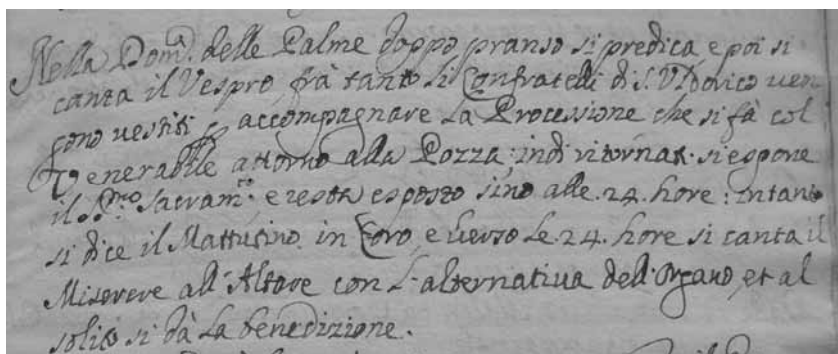 Nella Dom.ª delle Palme doppo pranso si predica, e poi si
canta il Vespro, frà tanto li Confratelli di S. Vldorico uen
gono uestiti p accompagnare La Processione che si fà col
Venerabile attorno alla Pozza; indi ritornat. si espone
il S.mo Sacram.to e resta esposto sino alle .24. hore: intanto
si dice il Mattutino in Coro, e uerso Le .24. hore si canta il
Miserere all'Altare con L'alternatiua dell'Organo, et al
solito si dà La benedizione.